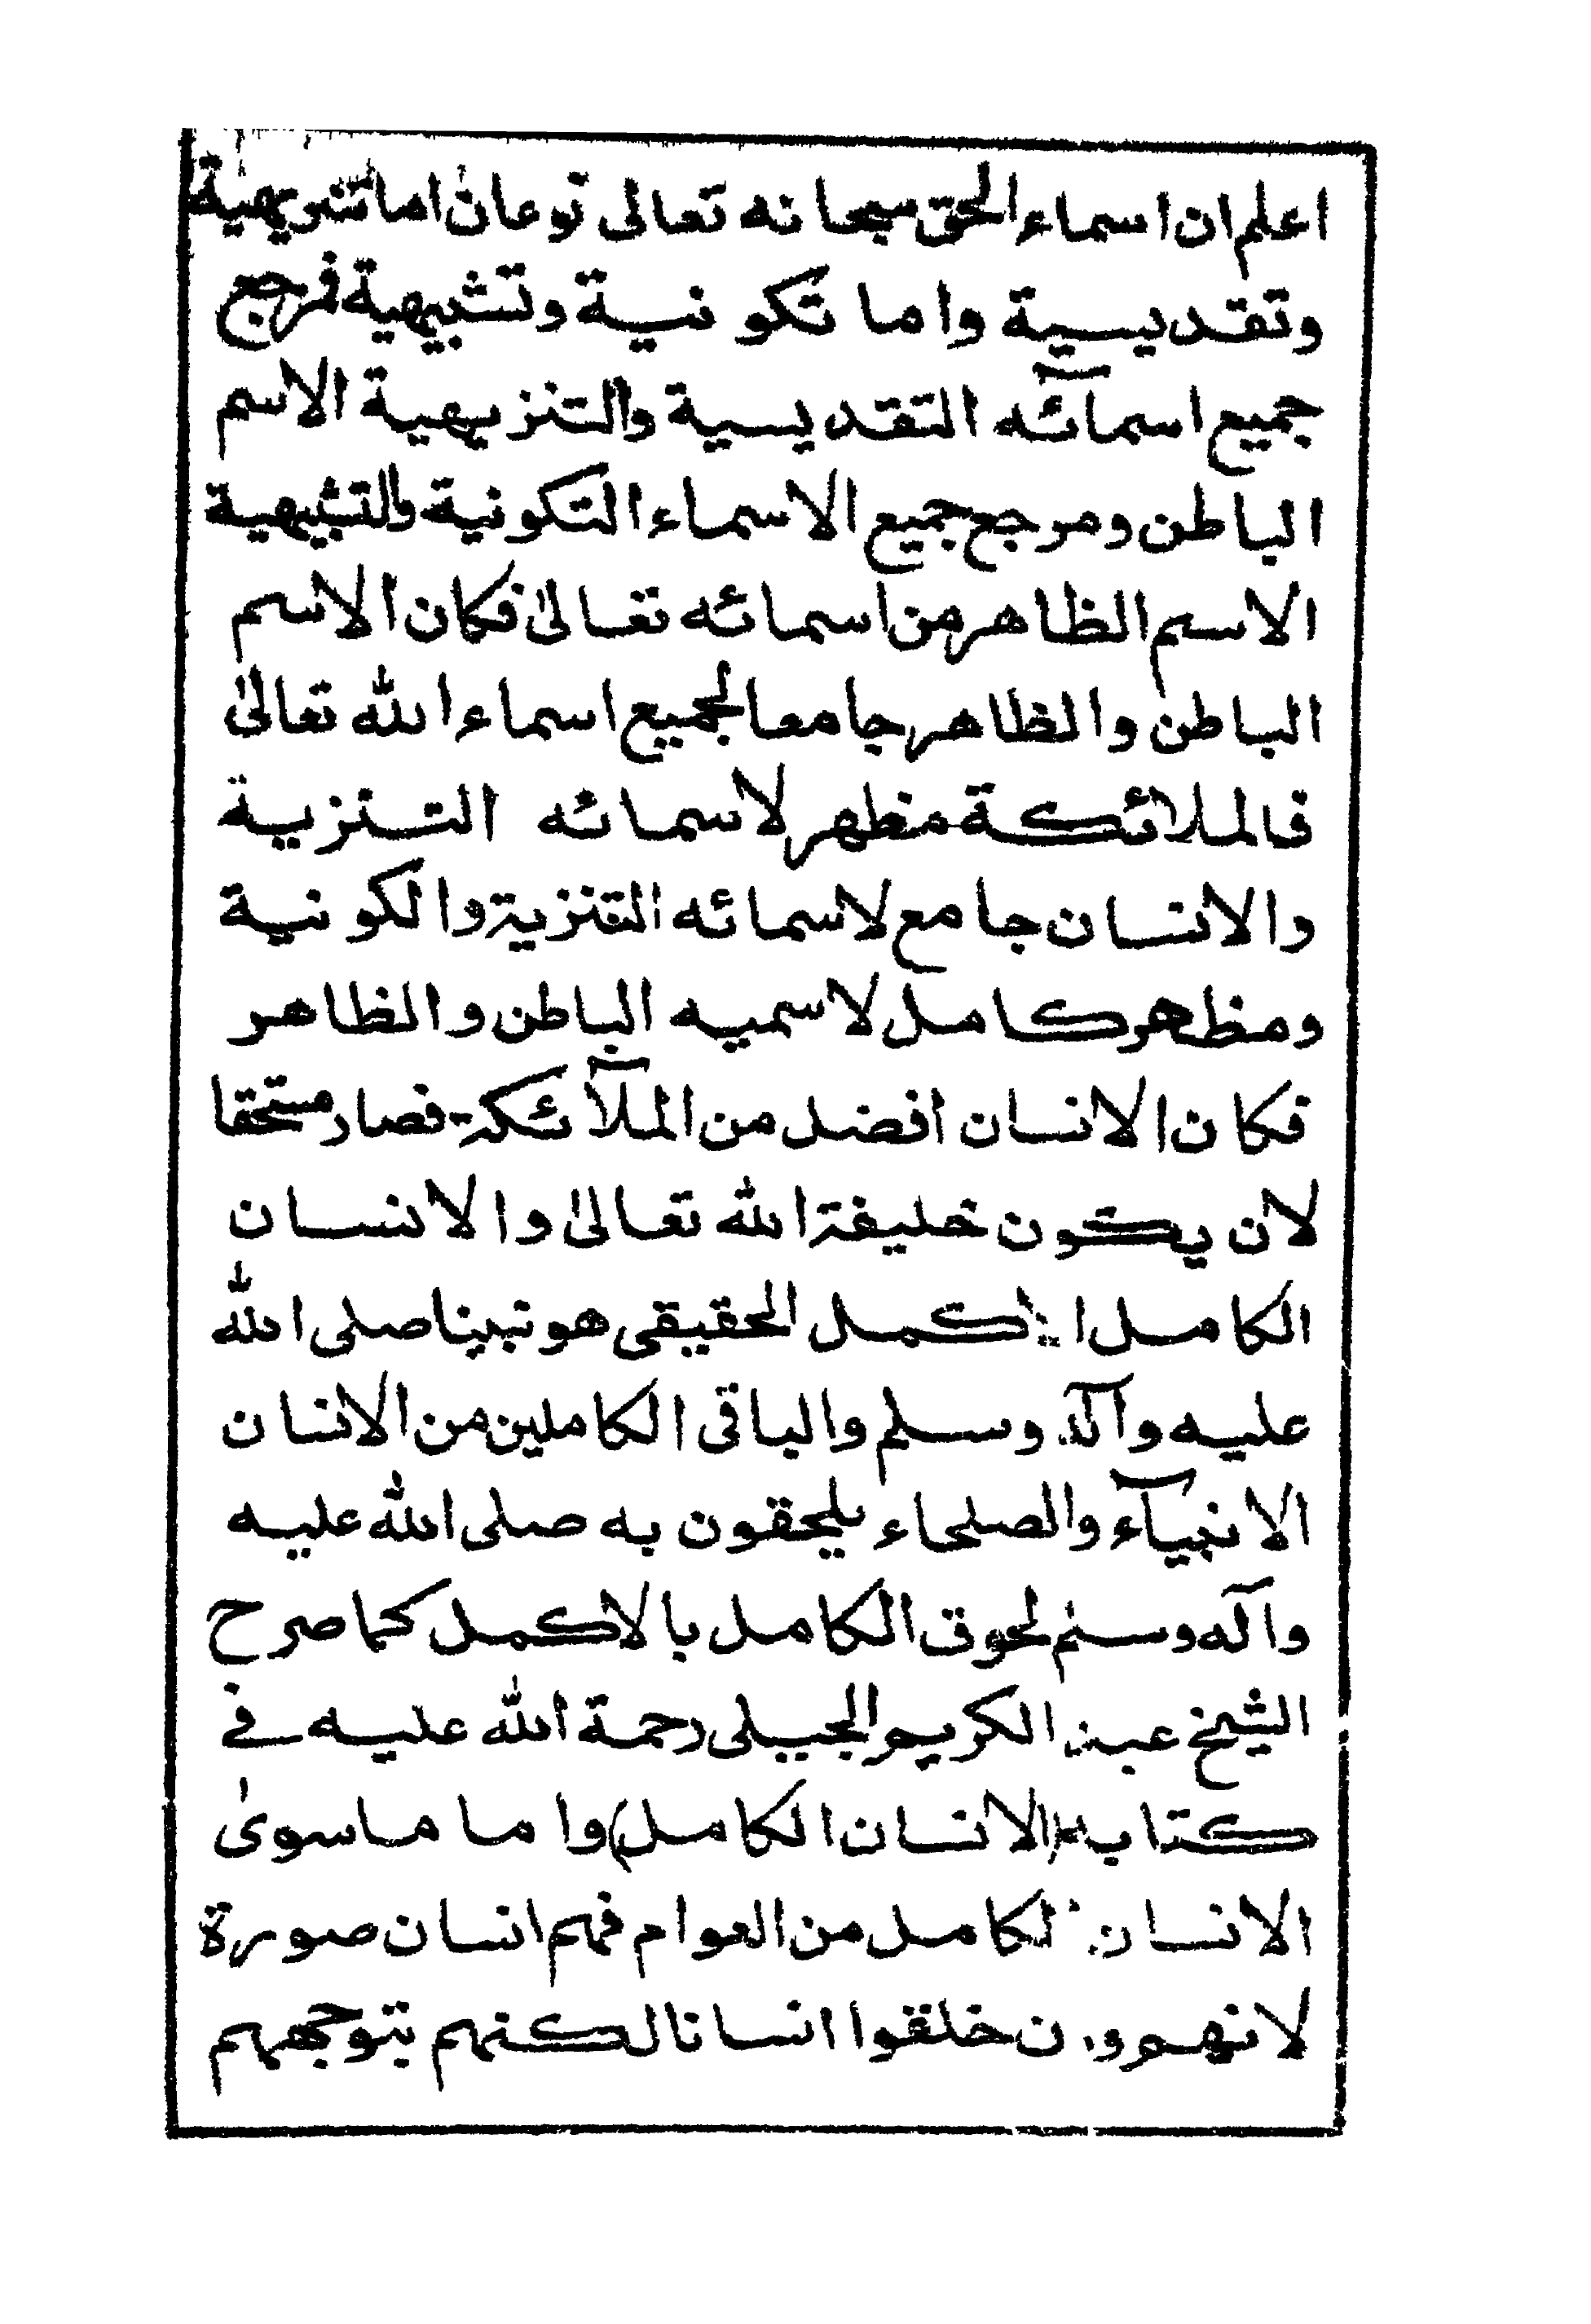 اعلم ان اسماء الحق سبحانه تعالى نوعان اما تنزيهية
وتقديسية واما تكونية وتشبيهية فمرجع
جميع اسمآئه التقديسية والتنزيهية الاسم
الباطن ومرجع جميع الاسماء التكونية والتشبيهية
الاسم الظاهر من اسمائه تعالىٰ فكان الاسم
الباطن والظاهر جامعا لجميع اسماء الله تعالىٰ
فالملائكة مظهر لاسمائه التنزية
والانسان جامع لاسمائه التنزية والكونية
ومظهر كامل لاسميه الباطن والظاهر
فكان الانسان افضل من الملآئكة فصار مستحقا
لان يكون خليفة الله تعالىٰ والانسان
الكامل الاكمل الحقيقى هو نبينا صلى الله
عليه وآله وسلم والباقى الكاملين من الانسان
الانبيآء والصلحاء يلحقون به صلى الله عليه
وآله وسلم لحوق الكامل بالاكمل كما صرح
الشيخ عبد الكريم الجيلى رحمة الله عليه فى
كتابه (الانسان الكامل) واما ما سوىٰ
الانسان الكامل من العوام فهم انسان صورة
لانهم وان خلقوا انسانا لكنهم بتوجههم